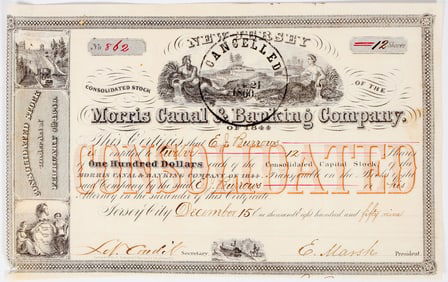 NEW JERSEY
No 862
12 Shares
CANCELLED
1860
CONSOLIDATED STOCK OF THE
Morris Canal & Banking Company.
OF 1844
This Certifies that E. Burrows
is entitled to Twelve 12 Shares
of One Hundred Dollars each of the Consolidated Capital Stock of the
MORRIS CANAL & BANKING COMPANY OF 1844 Transferable on the Books of the
said Company by the said E. Burrows or his
Attorney on the surrender of this Certificate
CONSOLIDATED
Jersey City December 15 one thousand eight hundred and fifty nine
Secretary E. Marsh President
CONSOLIDATED STOCK